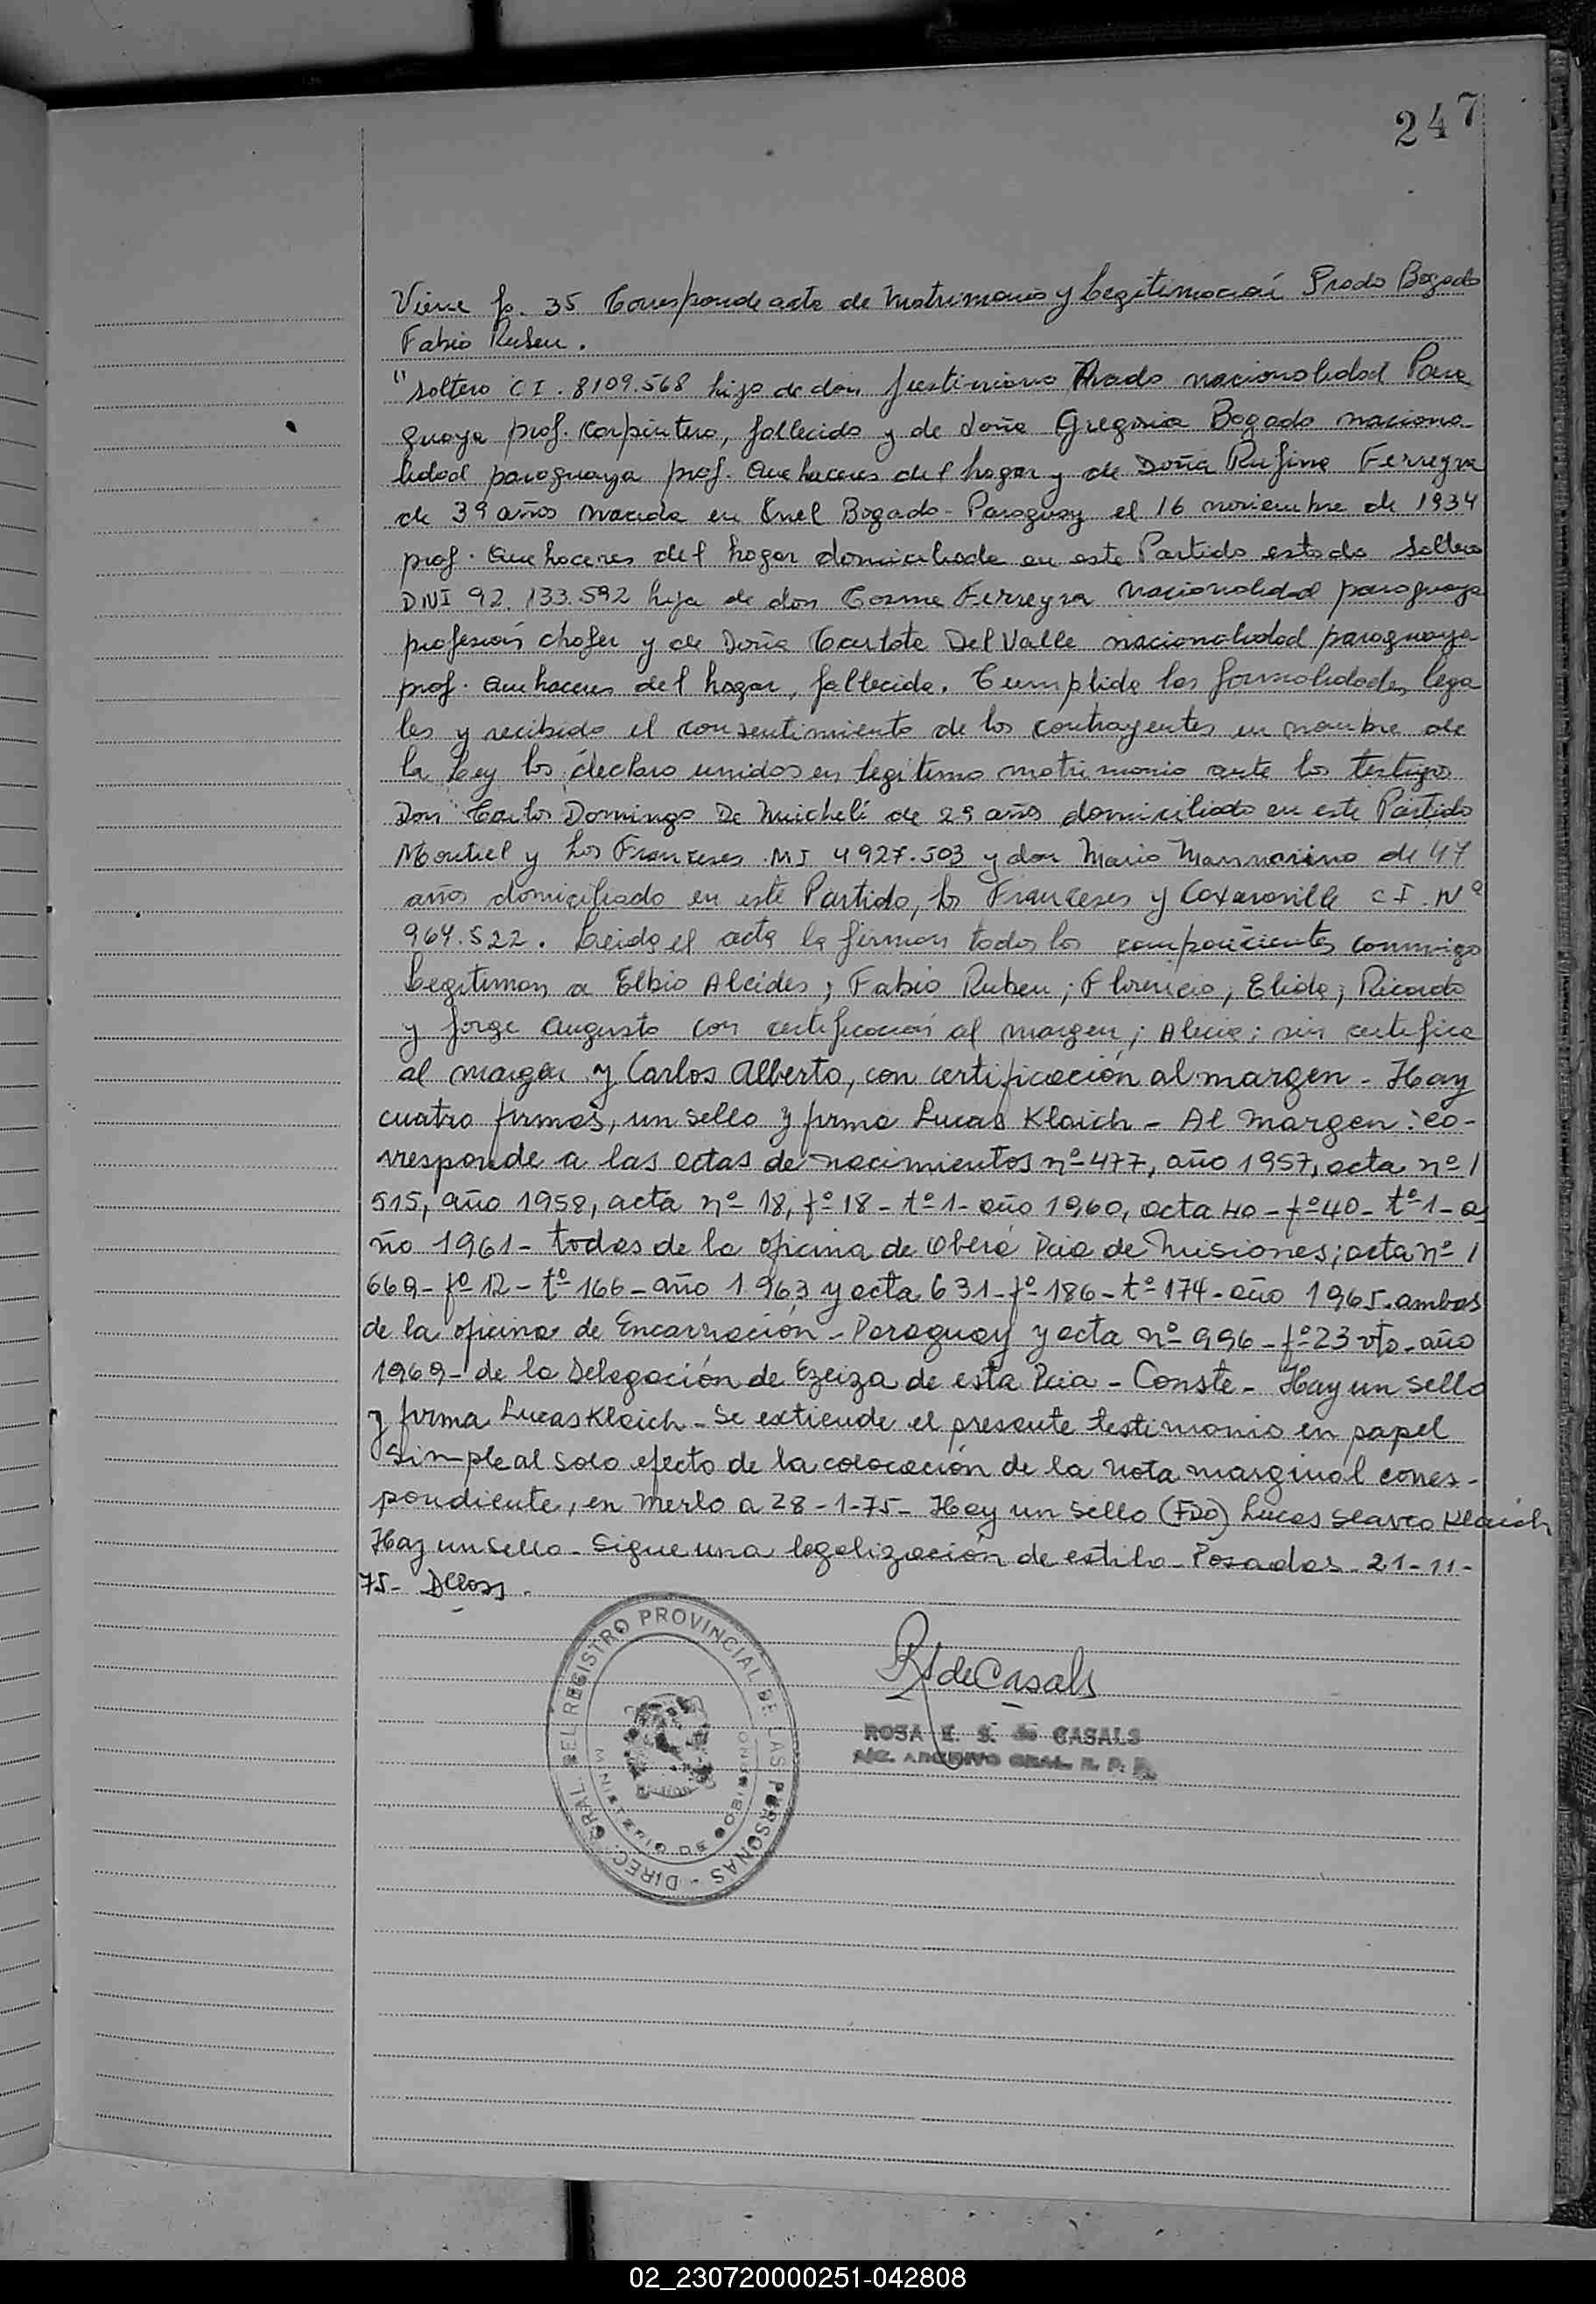 247
Viene fo. 35 Corresponde acta de Matrimonio y Legitimación Prado Bogado
Fabio Ruben.
"soltero CI. 8109.568 hijo de don Justiniano Prado nacionalidad Para
guaya prof. Carpintero, fallecido y de doña Gregoria Bogado naciona-
lidad paraguaya prof. Quehaceres del hogar y de Doña Rufina Ferreyra
de 39 años nacida en Cnel Bogado - Paraguay el 16 noviembre de 1934
prof. Quehaceres del hogar domiciliada en este Partido estado soltera
DNI 92.133.592 hija de don Cosme Ferreyra nacionalidad paraguaya
profesión chofer y de Doña Carlota Del Valle nacionalidad paraguaya
prof. Quehaceres del hogar, fallecida. Cumplida las formalidades lega
les y recibido el consentimiento de los contrayentes en nombre de
la Ley los declaro unidos en legitimo matrimonio ante los testigos
Don Carlos Domingo De Micheli de 29 años domiciliado en este Partido
Montiel y Los Franceses MI 4927.503 y don Mario de 47
años domiciliado en este Partido, los Franceses y CI. Nº
964.522. Leida el acta la firman todos los comparecientes conmigo
Legitiman a Elbio Alcides; Fabio Ruben; Florencio; Elida; Ricardo
y Jorge Augusto con certificación al margen; Alicia; sin certifica
al margen y Carlos Alberto, con certificación al margen - Hay
cuatro firmas, un sello y firma Lucas Klaich - Al Margen: co-
rresponde a las actas de nacimientos nº 477, año 1957, acta nº 1
515, año 1958, acta nº 18, fº 18 - tº 1 - año 1960, acta 40 - fº 40 - tº 1 - a
ño 1961 - todas de la oficina de Oberá Pcia de Misiones; acta nº 1
669 - fº 12 - tº 166 - año 1963 y acta 631 - fº 186 - tº 174 - año 1965 - ambas
de la oficina de Encarnación - Paraguay y acta nº 996 - fº 23 vto - año
1969 - de la Delegación de Ezeiza de esta Pcia - Conste - Hay un sello
y firma Lucas Klaich - Se extiende el presente testimonio en papel
simple al solo efecto de la colocación de la nota marginal corres-
pondiente, en Merlo a 28-1-75 - Hay un sello (FDO) Lucas Slavco Klaich
Hay un sello - Sigue una legalización de estilo - Posadas - 21-11-
75-
DIREC. GRAL. DEL REGISTRO PROVINCIAL DE LAS PERSONAS -
MINISTERIO DE GOBIERNO
Misiones
R de Casals
ROSA E. S. de CASALS
A/C. ARCHIVO GRAL. R. P. P.
02_230720000251-042808